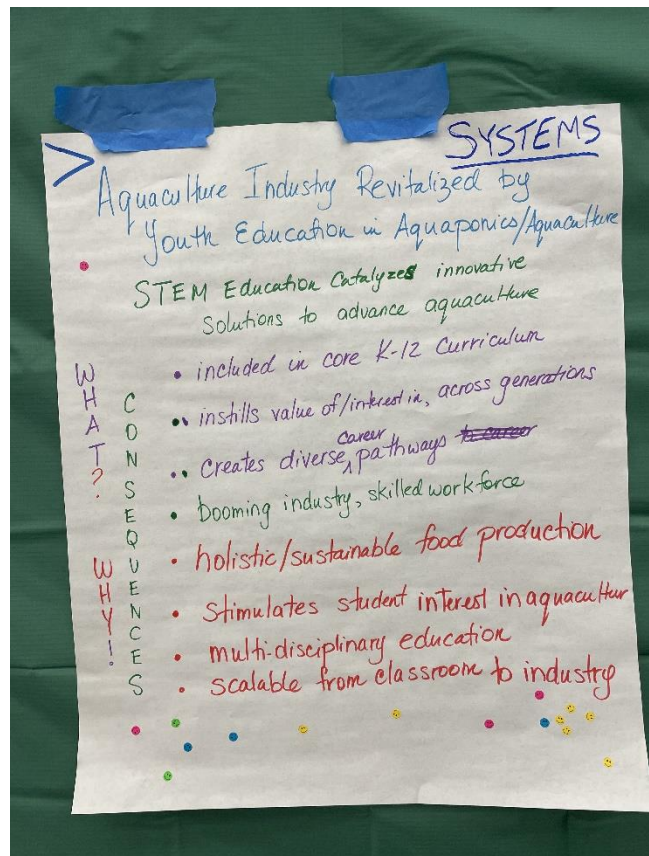 SYSTEMS
>
Aquaculture Industry Revitalized by
Youth Education in Aquaponics/Aquaculture
STEM Education Catalyzes innovative
Solutions to advance aquaculture
WHAT?
WHY!
CONSEQUENCES
• included in core K-12 Curriculum
•• instills value of/interest in, across generations
career
•• Creates diverse ^ pathways to career
• booming industry, skilled workforce
• holistic/sustainable food production
• Stimulates student interest in aquacultur
• multi-disciplinary education
• scalable from classroom to industry